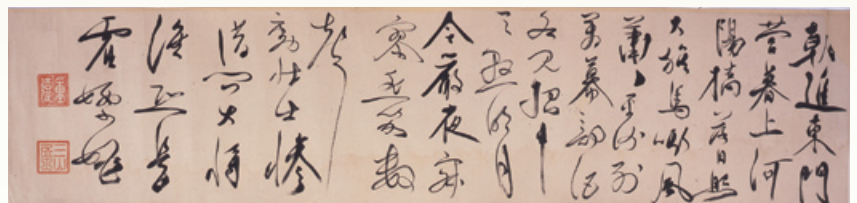 朝進東門
營暮上河
陽橋落日照
大旗馬鳴風
蕭〻平沙列
萬幕部伍
各見招中
天懸明月
令嚴夜寂
寥悲笳數
聲
動壯士慘
借問大將
誰恐是
霍嫖姚